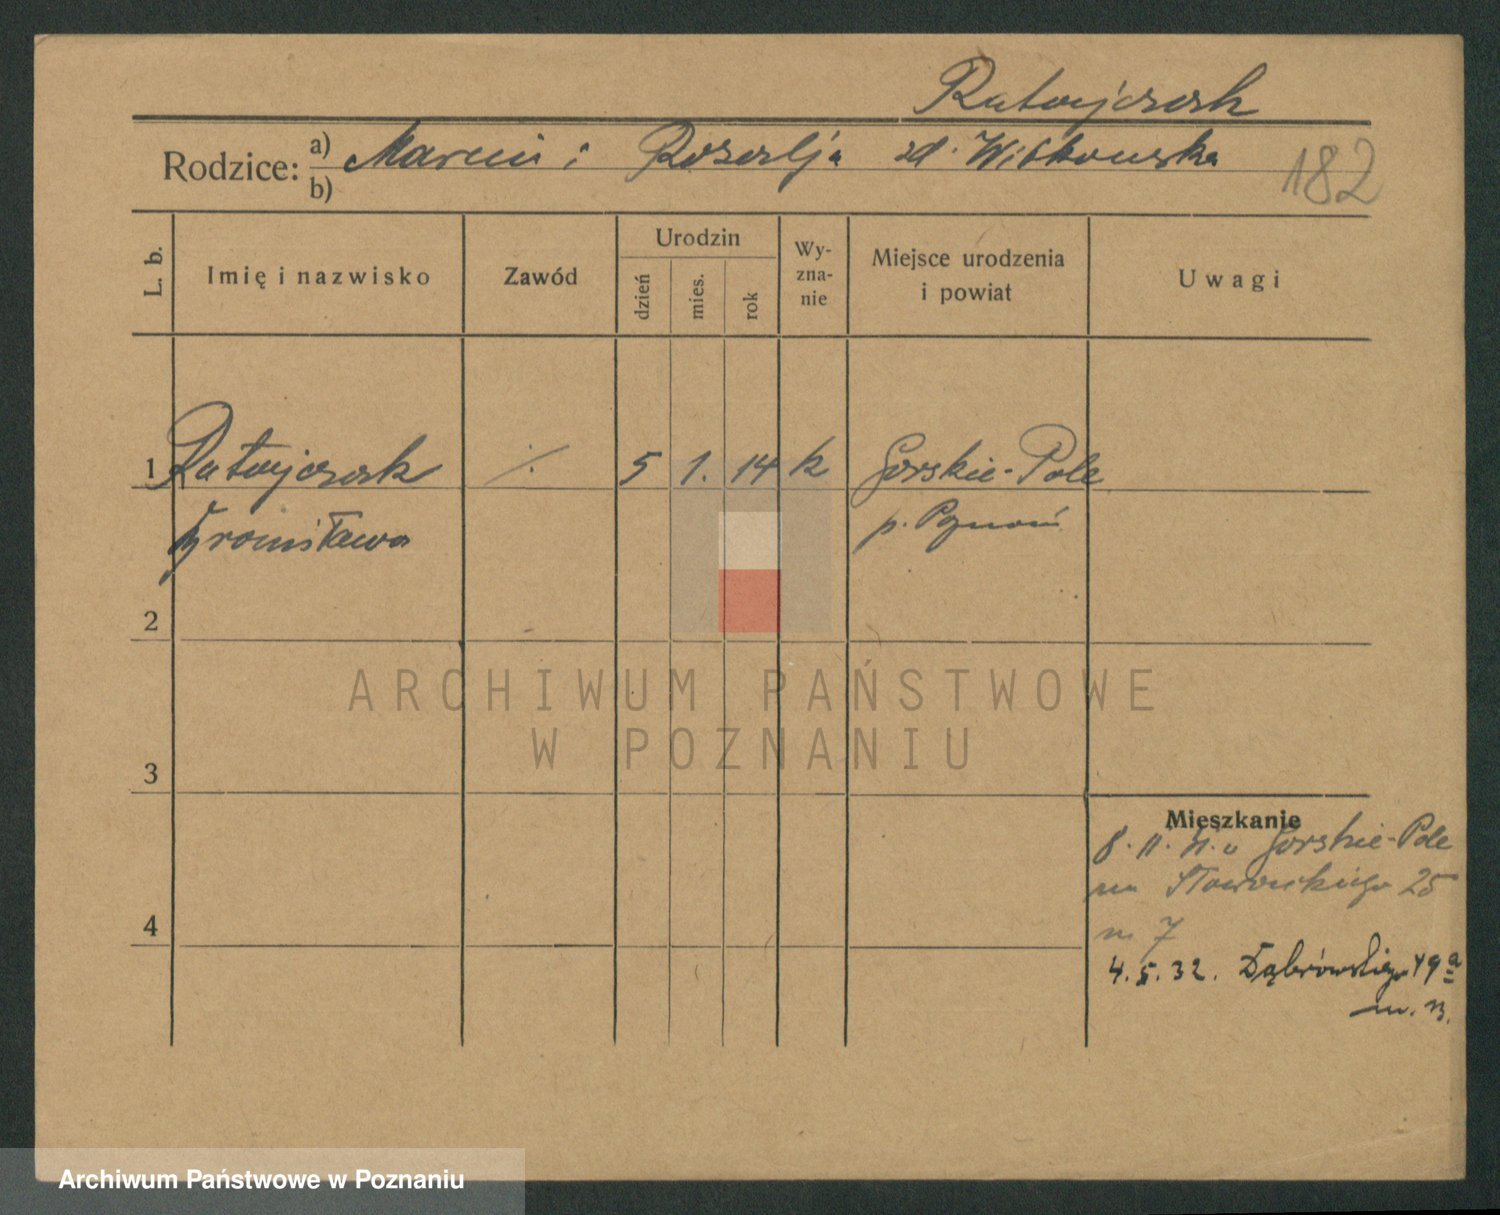 Ratajczak
Rodzice: a) Marcin i Rozalja zd. Witkowska
b)
182
L. b.
Imię i nazwisko
Zawód
Urodzin
dzień
mies.
rok
Wy-
zna-
nie
Miejsce urodzenia
i powiat
Uwagi
1 Ratajczak ./. 5 1. 14 k Gorskie-Pole
Bronisława p. Poznań
2
3
4
Mieszkanie
8. 11. Gorskie-Pole
na Słowackiego 25
m 7
4.5.32. Dąbrowskiego 49a
m.
ARCHIWUM PAŃSTWOWE
W POZNANIU
Archiwum Państwowe w Poznaniu